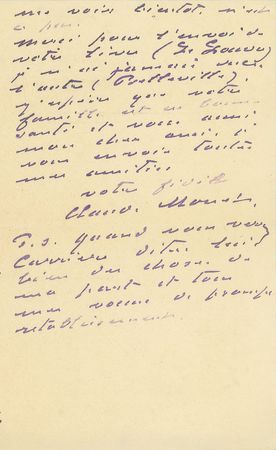 me voir bientôt, n'est
ce pas.
Merci pour l'envoi de
votre livre (de Goncourt)
je n'ai jamais reçu
l'autre
J'espère que votre
famille est en bonne
santé et vous aussi
mon cher ami, je
vous envoie toutes
mes amitiés
votre fidèle
Claude Monet.
P.S. Quand vous verrez
Carrière dites lui
bien des choses de
ma part et tous
mes voeux de prompt
rétablissement.